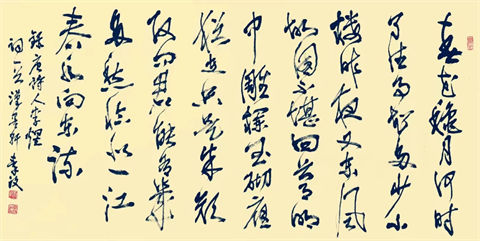 春花龝月何时
了往事知多少小
楼昨夜又东风
故国不堪回首月明
中雕栏玉砌应
犹在只是朱颜
改问君能有几
多愁恰似一江
春水向东流
录唐诗人李煜
词一首